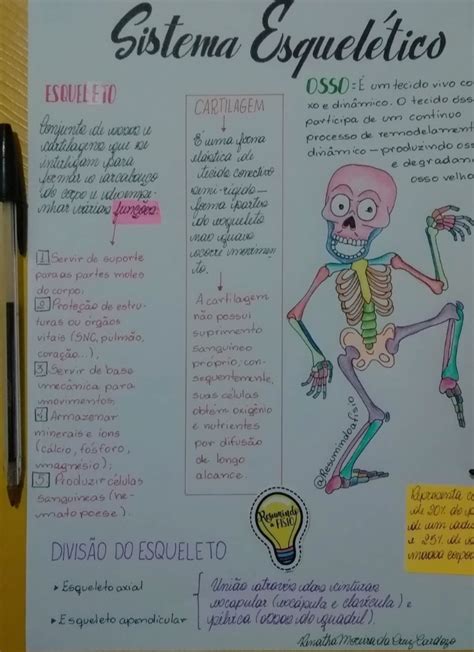 Sistema Esquelético
ESQUELETO
Conjunto de ossos e
cartilagens que se
interligam para
formar o arcabouço
do corpo e desempe-
nhar várias funções.
1 Servir de suporte
para as partes moles
do corpo;
2 Proteção de estru-
turas ou órgãos
vitais (SNC, pulmão,
coração...);
3 Servir de base
mecânica para
movimentos;
4 Armazenar
minerais e íons
(cálcio, fósforo,
magnésio);
5 Produzir células
sanguíneas (he-
matopoese).
CARTILAGEM
É uma forma
elástica de
tecido conectivo
semi-rígido –
forma partes
do esqueleto
nas quais
ocorre movimen-
to.
A cartilagem
não possui
suprimento
sanguíneo
próprio; con-
sequentemente,
suas células
obtêm oxigênio
e nutrientes
por difusão
de longo
alcance.
OSSO: É um tecido vivo co
xo e dinâmico. O tecido óss
participa de um contínuo
processo de remodelament
dinâmico – produzindo oss
e degradan
osso velho
@Resumindoafisio
Representa ce
de 20% do pe
de um
e 25% de
massa corpo
Resumindo
a FISIO
DIVISÃO DO ESQUELETO
Esqueleto axial
Esqueleto apendicular
União através das cinturas
escapular (escápula e clavícula) e
pélvica (ossos do quadril).
Renatha Moura da Cruz Cardozo